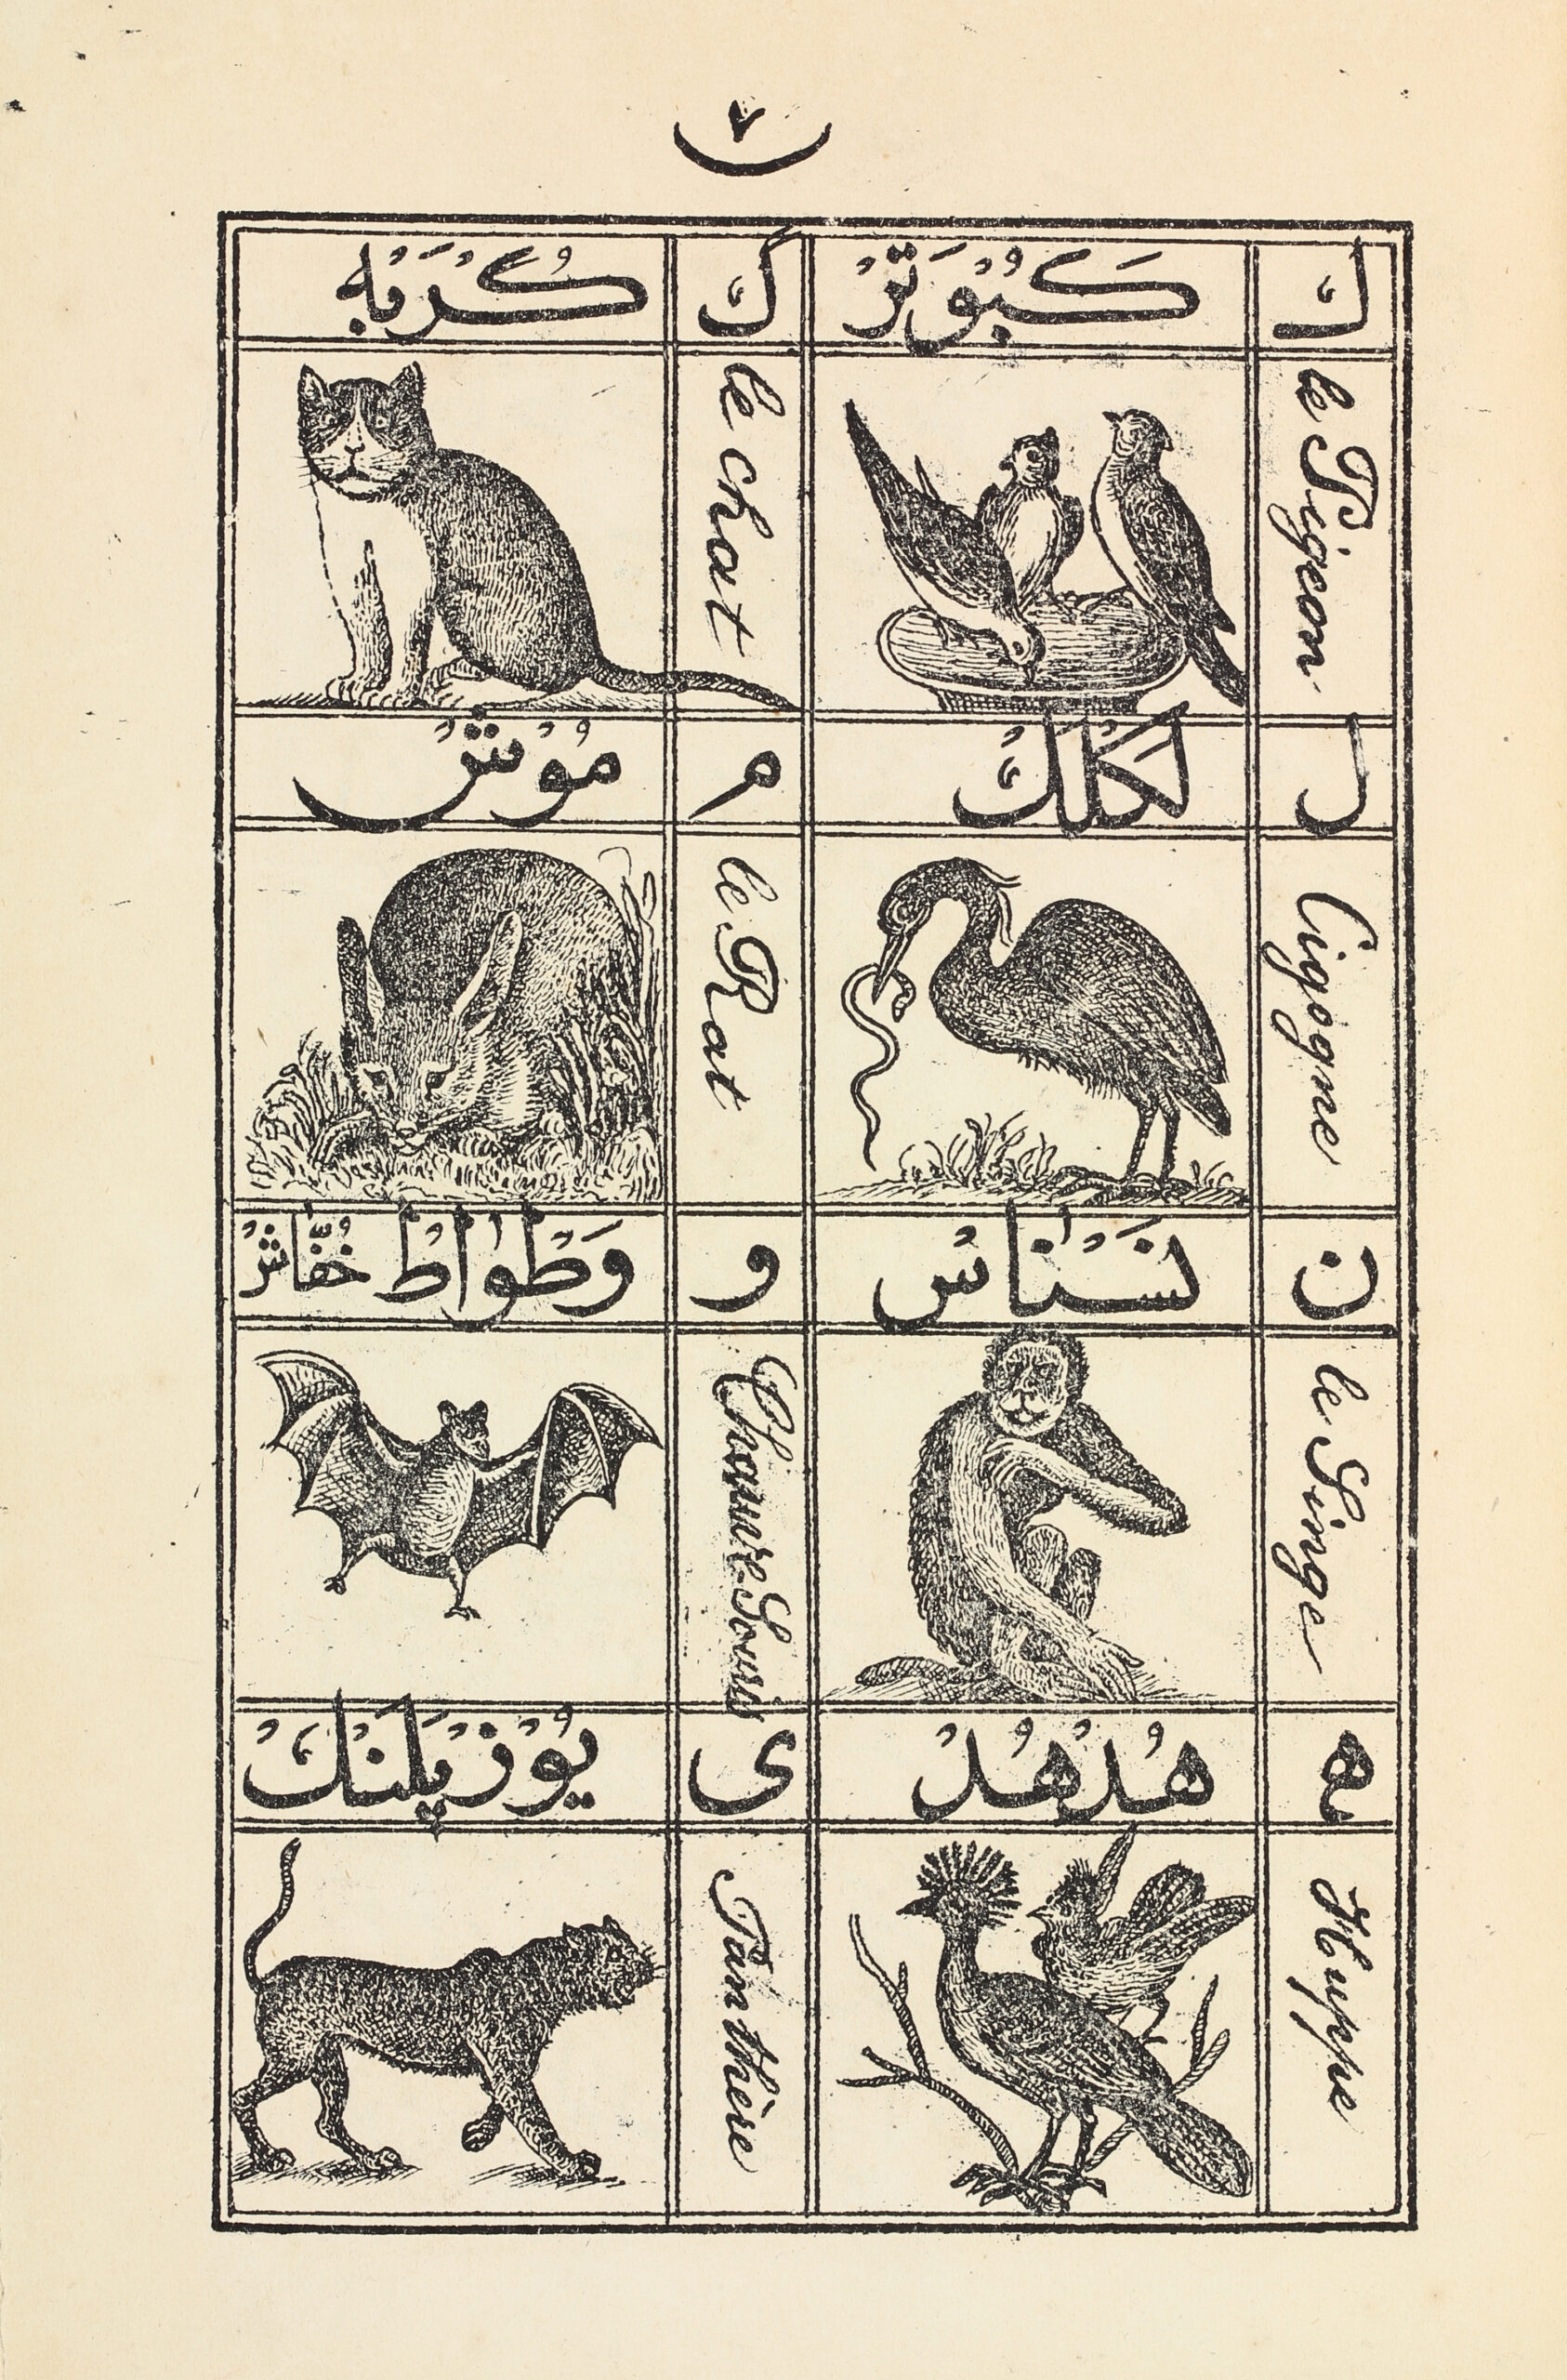 ٧
ك
كَبُوْتَرْ
ك
كُرْبَهْ
le Pigeon
le chat
ل
لَكْلَكْ
م
مُوْشْ
Cigogne
le Rat
ن
نَسْنَاسْ
و
وَطْوَاطْ خُفَّاشْ
le Singe
Chauve-Souris
ه
هُدْهُدْ
ى
يُوْزْپَلَنْكْ
Huppe
Panthère